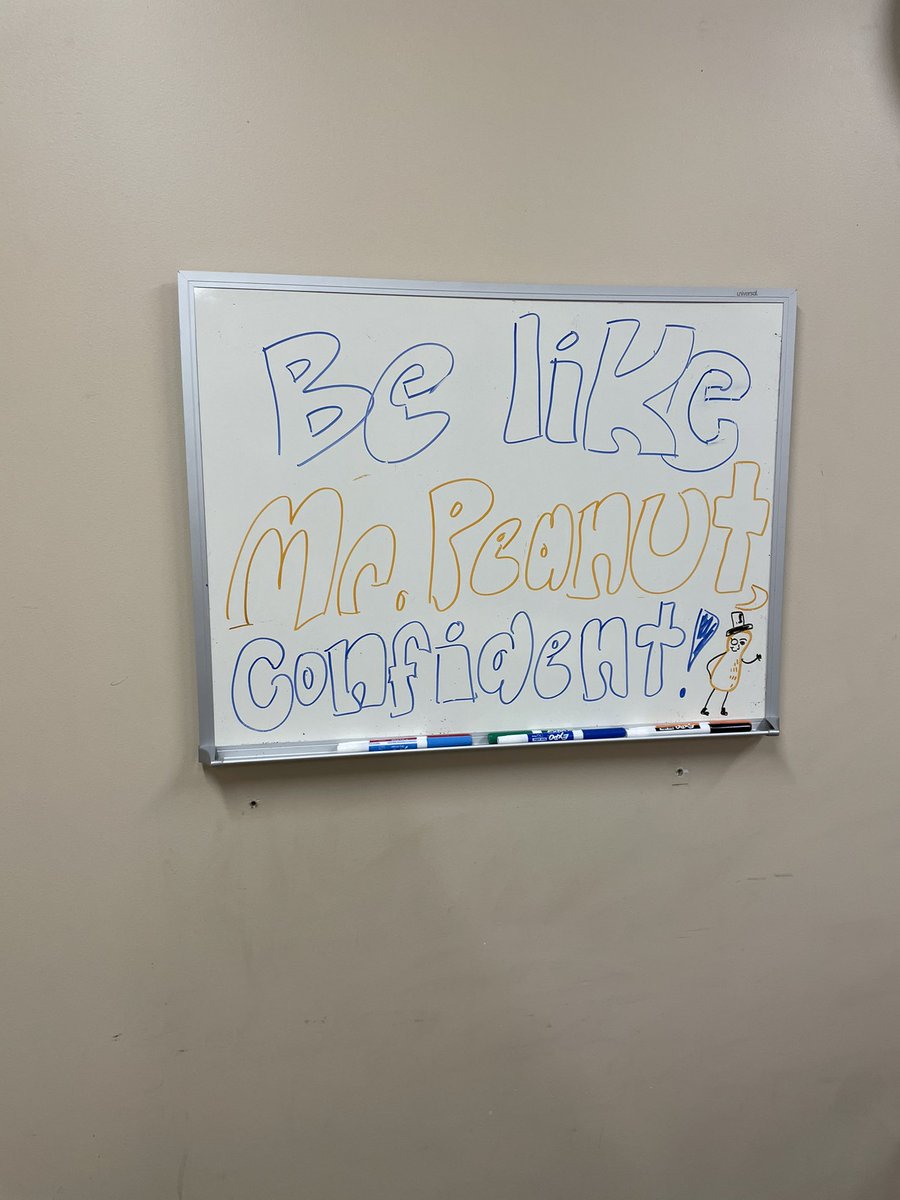 universal
Be like
Mr. Peanut,
Confident!
EXPO
EXPO